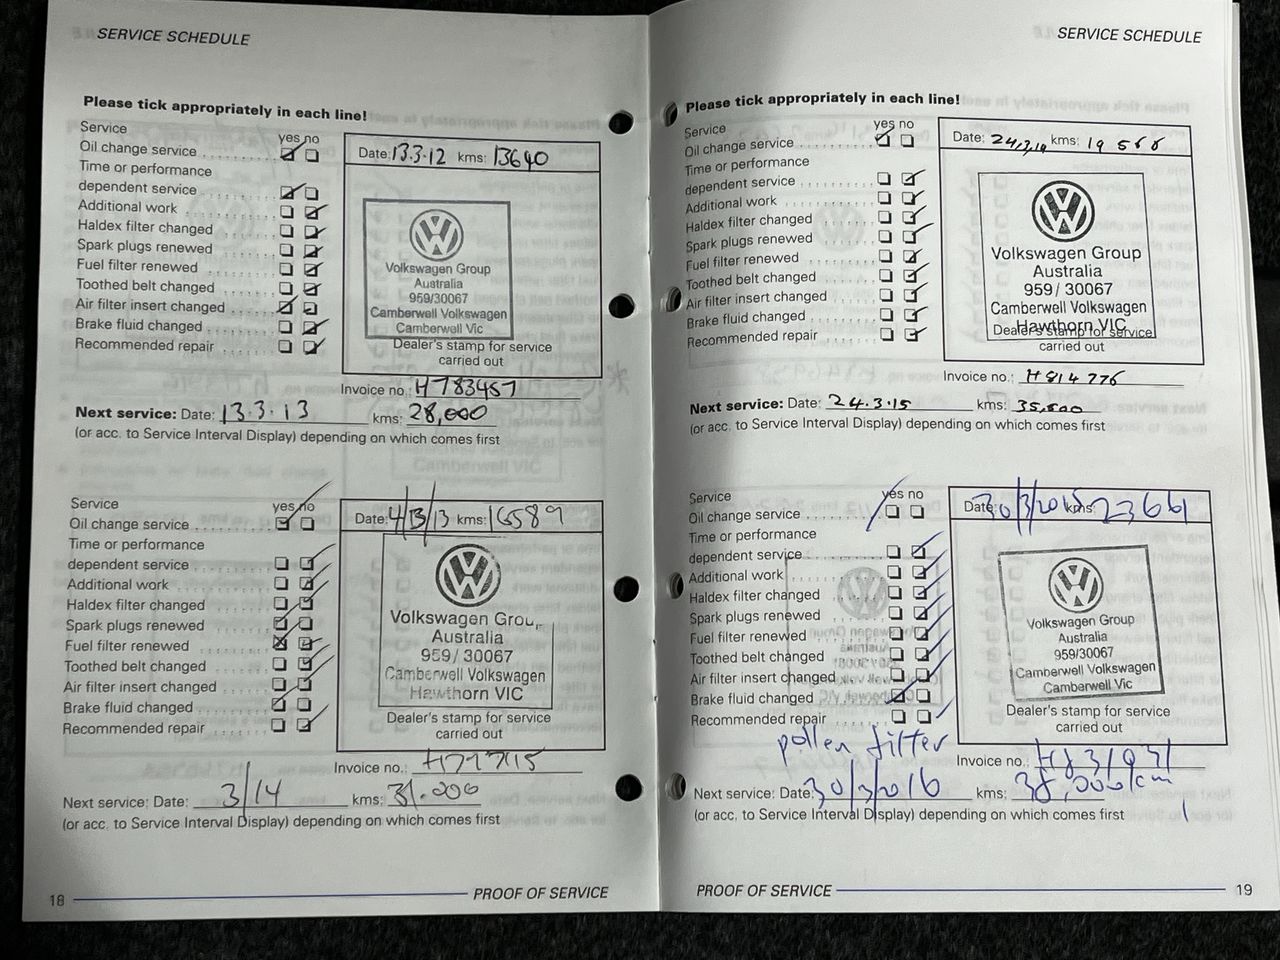 SERVICE SCHEDULE
Please tick appropriately in each line!
Service
yes no
Oil change service
Time or performance
dependent service
Additional work
Haldex filter changed
Spark plugs renewed
Fuel filter renewed
Toothed belt changed
Air filter insert changed
Brake fluid changed
Recommended repair
Date: 13.3.12 kms: 13640
Volkswagen Group
Australia
959/30067
Camberwell Volkswagen
Camberwell Vic
Dealer's stamp for service
carried out
Invoice no.: H783457
Next service: Date: 13.3.13 kms: 28,000
(or acc. to Service Interval Display) depending on which comes first
Service
yes no
Oil change service
Time or performance
dependent service
Additional work
Haldex filter changed
Spark plugs renewed
Fuel filter renewed
Toothed belt changed
Air filter insert changed
Brake fluid changed
Recommended repair
Date: 4/3/13 kms: 16589
Volkswagen Group
Australia
959/30067
Camberwell Volkswagen
Hawthorn VIC
Dealer's stamp for service
carried out
Invoice no.:
Next service: Date: 3/14 kms: 31.000
(or acc. to Service Interval Display) depending on which comes first
18
PROOF OF SERVICE
SERVICE SCHEDULE
Please tick appropriately in each line!
Service
yes no
Oil change service
Time or performance
dependent service
Additional work
Haldex filter changed
Spark plugs renewed
Fuel filter renewed
Toothed belt changed
Air filter insert changed
Brake fluid changed
Recommended repair
Date: 24.3.14 kms:
Volkswagen Group
Australia
959/30067
Camberwell Volkswagen
Hawthorn VIC
Dealer's stamp for service
carried out
Invoice no.: H814776
Next service: Date: 24.3.15 kms: 35,500
(or acc. to Service Interval Display) depending on which comes first
Service
yes no
Oil change service
Time or performance
dependent service
Additional work
Haldex filter changed
Spark plugs renewed
Fuel filter renewed
Toothed belt changed
Air filter insert changed
Brake fluid changed
Recommended repair
pollen filter
Date: 30/3/2015 kms: 23661
Volkswagen Group
Australia
959/30067
Camberwell Volkswagen
Camberwell Vic
Dealer's stamp for service
carried out
Invoice no.:
Next service: Date: 30/3/2016 kms: 38,000km
(or acc. to Service Interval Display) depending on which comes first
PROOF OF SERVICE
19